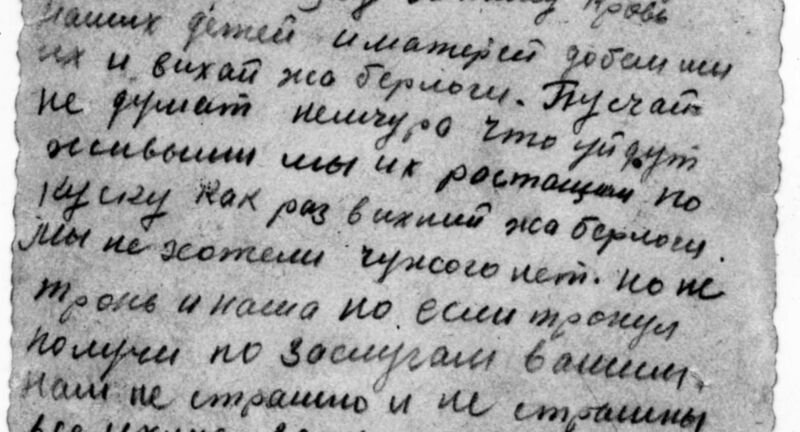 кровь
наших детей и матерей добеш ми
их и вихай жа берлоги. Пусчай
не думат немчура что уйдут
живыми мы их ростащим по
куску как раз вихний жа берлоги.
Мы не хотели чужого нет. но не
тронь и наша но если тронул
получи по заслугам вашим.
нам не страшно и не страшны